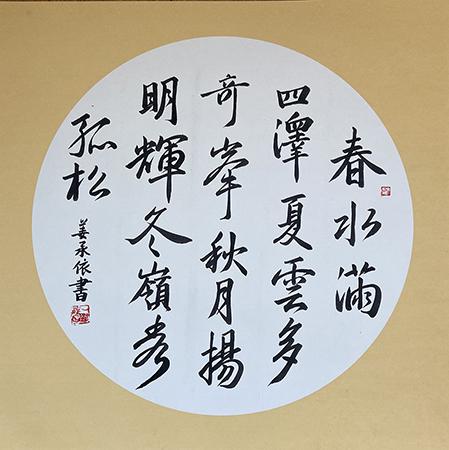 春水滿
四澤夏雲多
奇峯秋月揚
明輝冬嶺秀
孤松
姜承依書